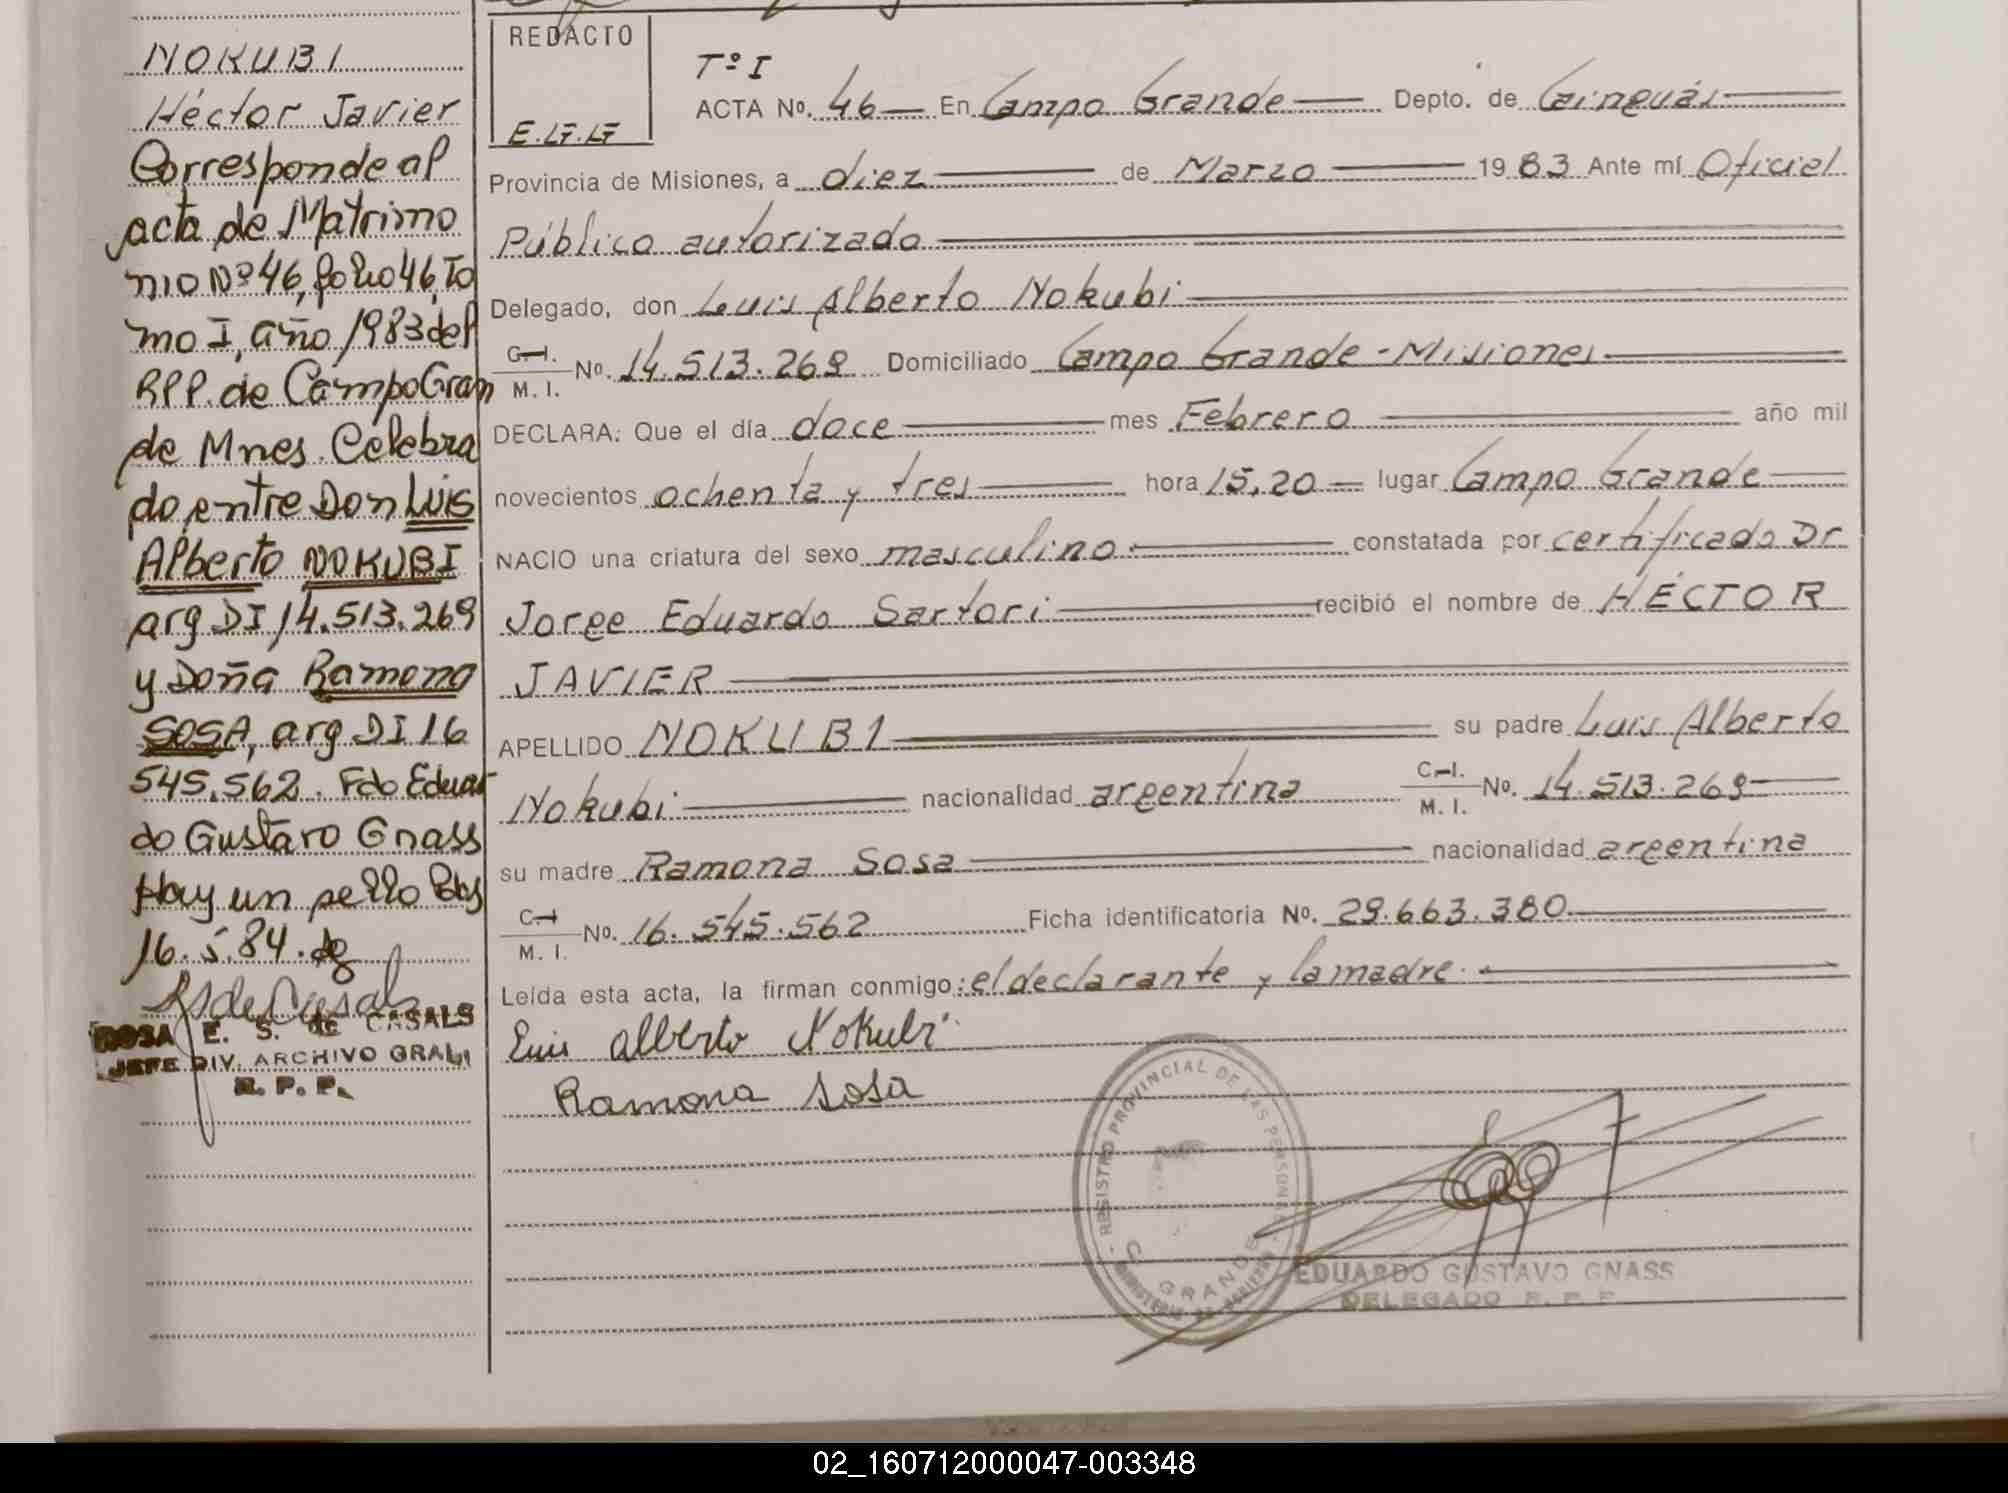 NOKUBI
Héctor Javier
Corresponde al
acta de Matrimo
nio Nº 46, folio 46, To
mo I, año 1983 del
RPP. de Campo Gran
de Mnes. Celebra
do entre Don Luis
Alberto NOKUBI
arg DI 14.513.269
y Doña Ramona
SOSA, arg DI 16
545.562. Fdo Eduar
do Gustavo Gnass
Hay un sello Pdas
16.5.84.
ROSA E. S. de CASALS
JEFE DIV. ARCHIVO GRAL.
R. P. P.
REDACTO
E.G.G
Tº I
ACTA Nº. 46 En Campo Grande Depto. de Cainguás
Provincia de Misiones, a diez de Marzo 1983 Ante mí Oficial
Público autorizado
Delegado, don Luis Alberto Nokubi
C.I. M. I. Nº. 14.513.269 Domiciliado Campo Grande - Misiones
DECLARA: Que el día doce mes Febrero año mil
novecientos ochenta y tres hora 15,20 lugar Campo Grande
NACIO una criatura del sexo masculino constatada por certificado Dr
Jorge Eduardo Sartori recibió el nombre de HÉCTOR
JAVIER
APELLIDO NOKUBI su padre Luis Alberto
Nokubi nacionalidad argentina C.I. M. I. Nº. 14.513.269
su madre Ramona Sosa nacionalidad argentina
C.I. M. I. Nº. 16.545.562 Ficha identificatoria Nº. 29.663.380
Leída esta acta, la firman conmigo: el declarante y la madre.
Luis alberto Nokubi
Ramona Sosa
REGISTRO PROVINCIAL DE LAS PERSONAS
C. GRANDE
EDUARDO GUSTAVO GNASS
DELEGADO R. P. P.
02_160712000047-003348